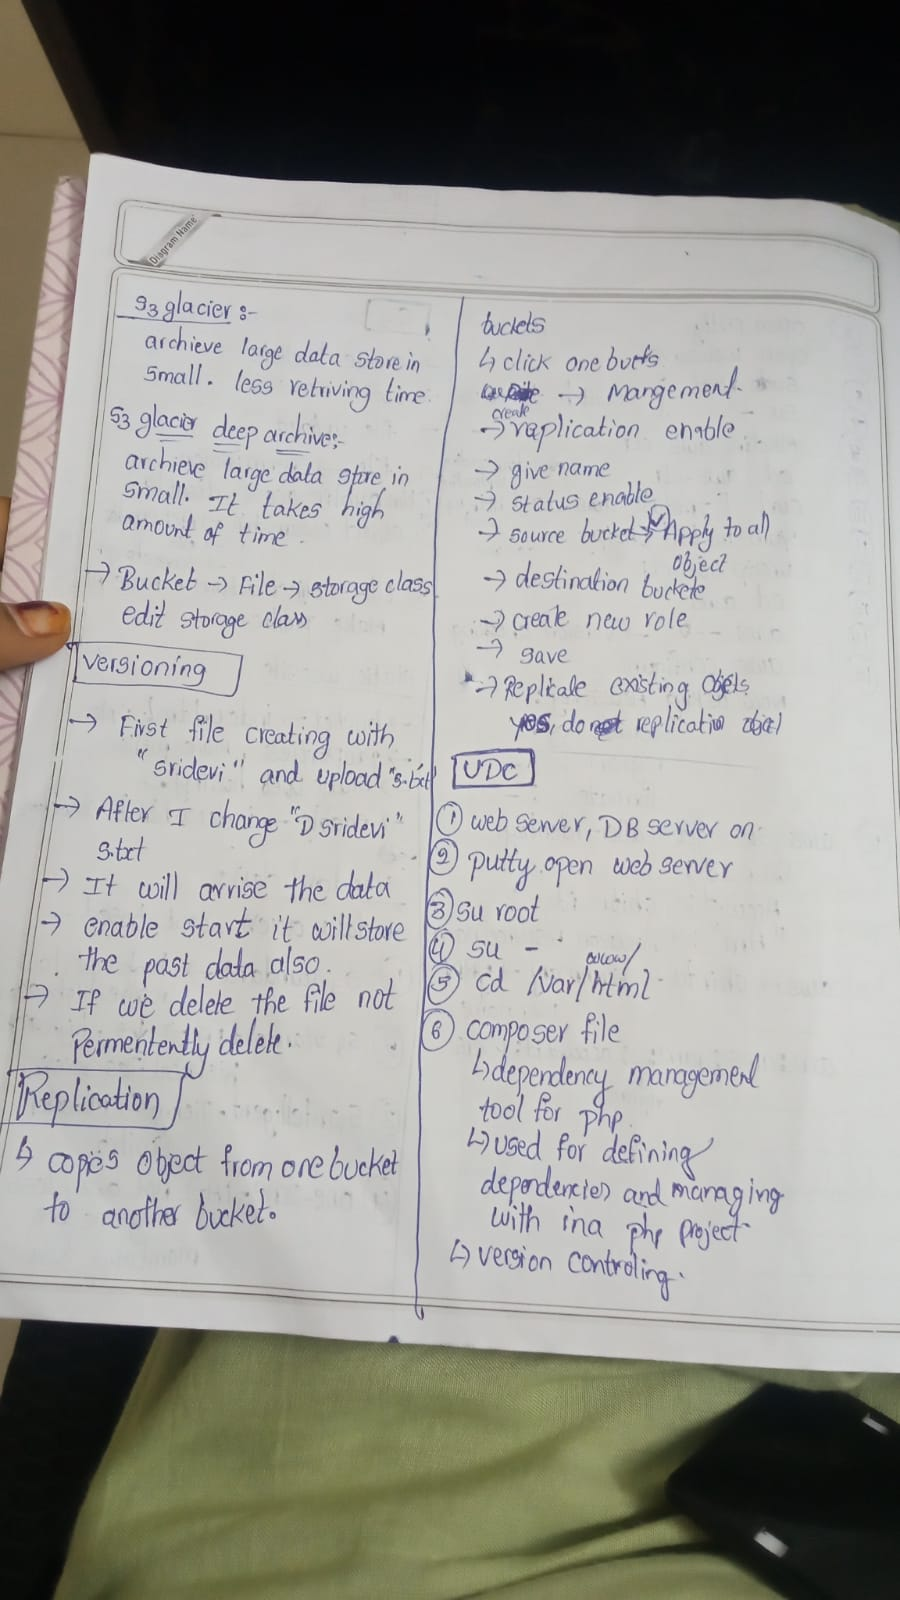 Diagram Name
S3 glacier :-
archieve large data store in
small. less retriving time.
S3 glacier deep archive:-
archieve large data store in
small. It takes high
amount of time.
→ Bucket → File → storage class
edit storage class
Versioning
→ First file creating with
"sridevi" and upload "s.txt"
→ After I change "D sridevi"
s.txt
→ It will arrise the data
→ enable start it will store
the past data also.
→ If we delete the file not
Permentently delete.
Replication
↳ copies object from one bucket
to another bucket.
buckets
↳ click one
→ Mangement
create
→ raplication enable
→ give name
→ status enable
→ source bucket → Apply to all
object
→ destination buckete
→ create new role
→ save
→ Replicate existing objets
yes, do not replication object
UDC
① web server, DB server on
② putty open web server
③ su root
④ su -
www/
⑤ cd /var/html
⑥ composer file
↳ dependency management
tool for php.
↳ used for defining
dependencies and managing
with in a php project
↳ version controling.